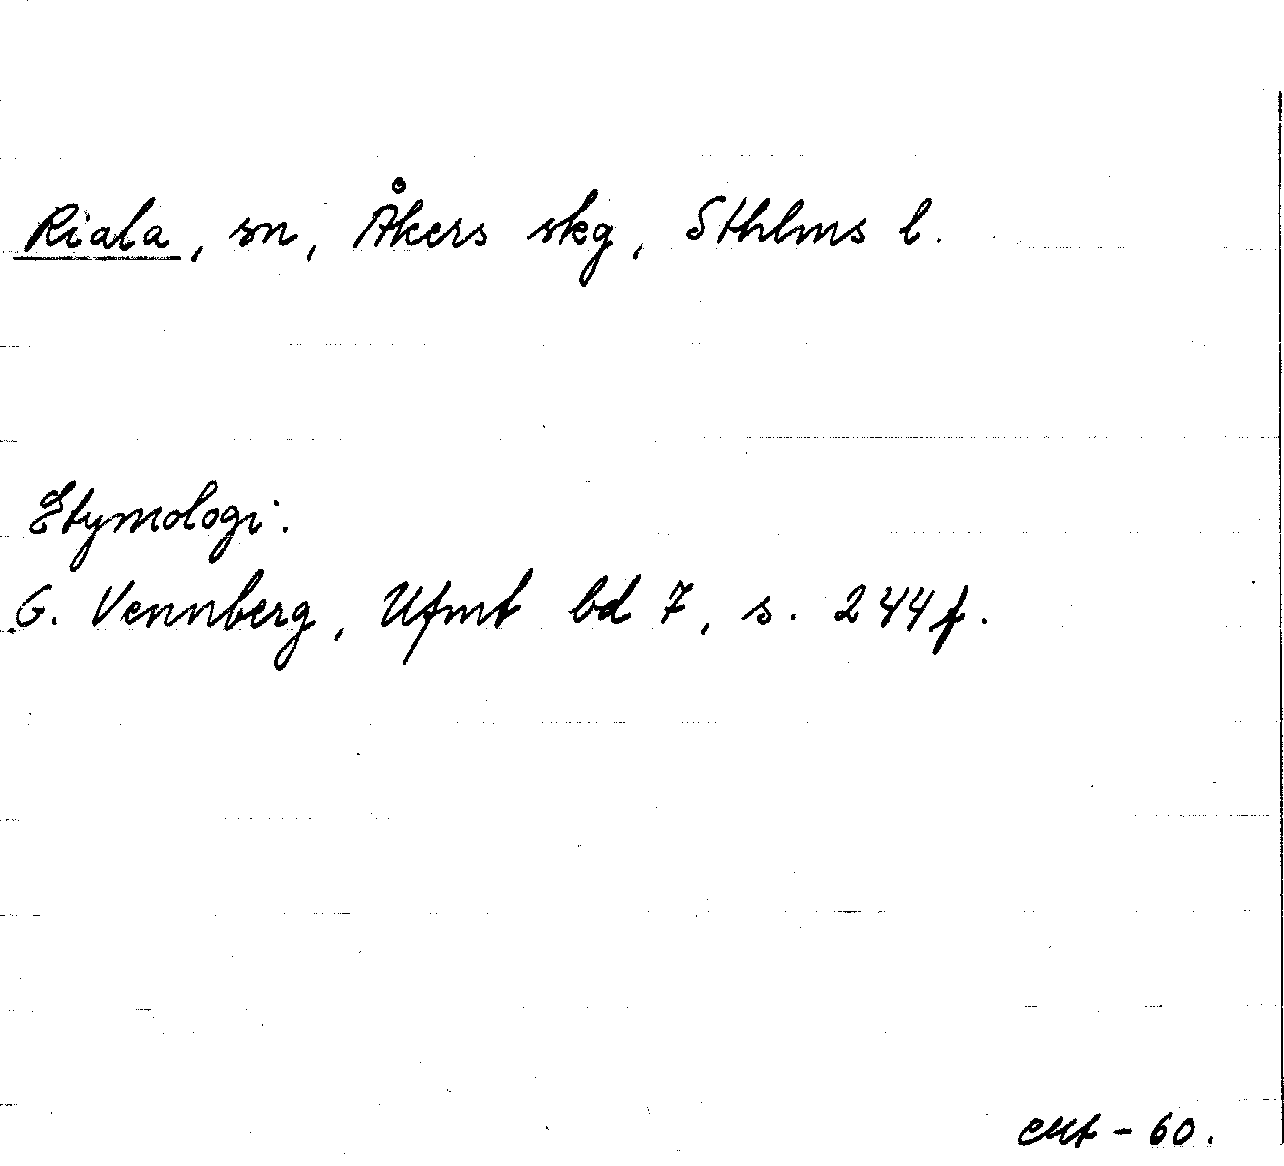 Riala, sn, Åkers skg, Sthlms l.
Etymologi.
G. Vennberg, Ufmt bd 7, s. 244f.
- 60.